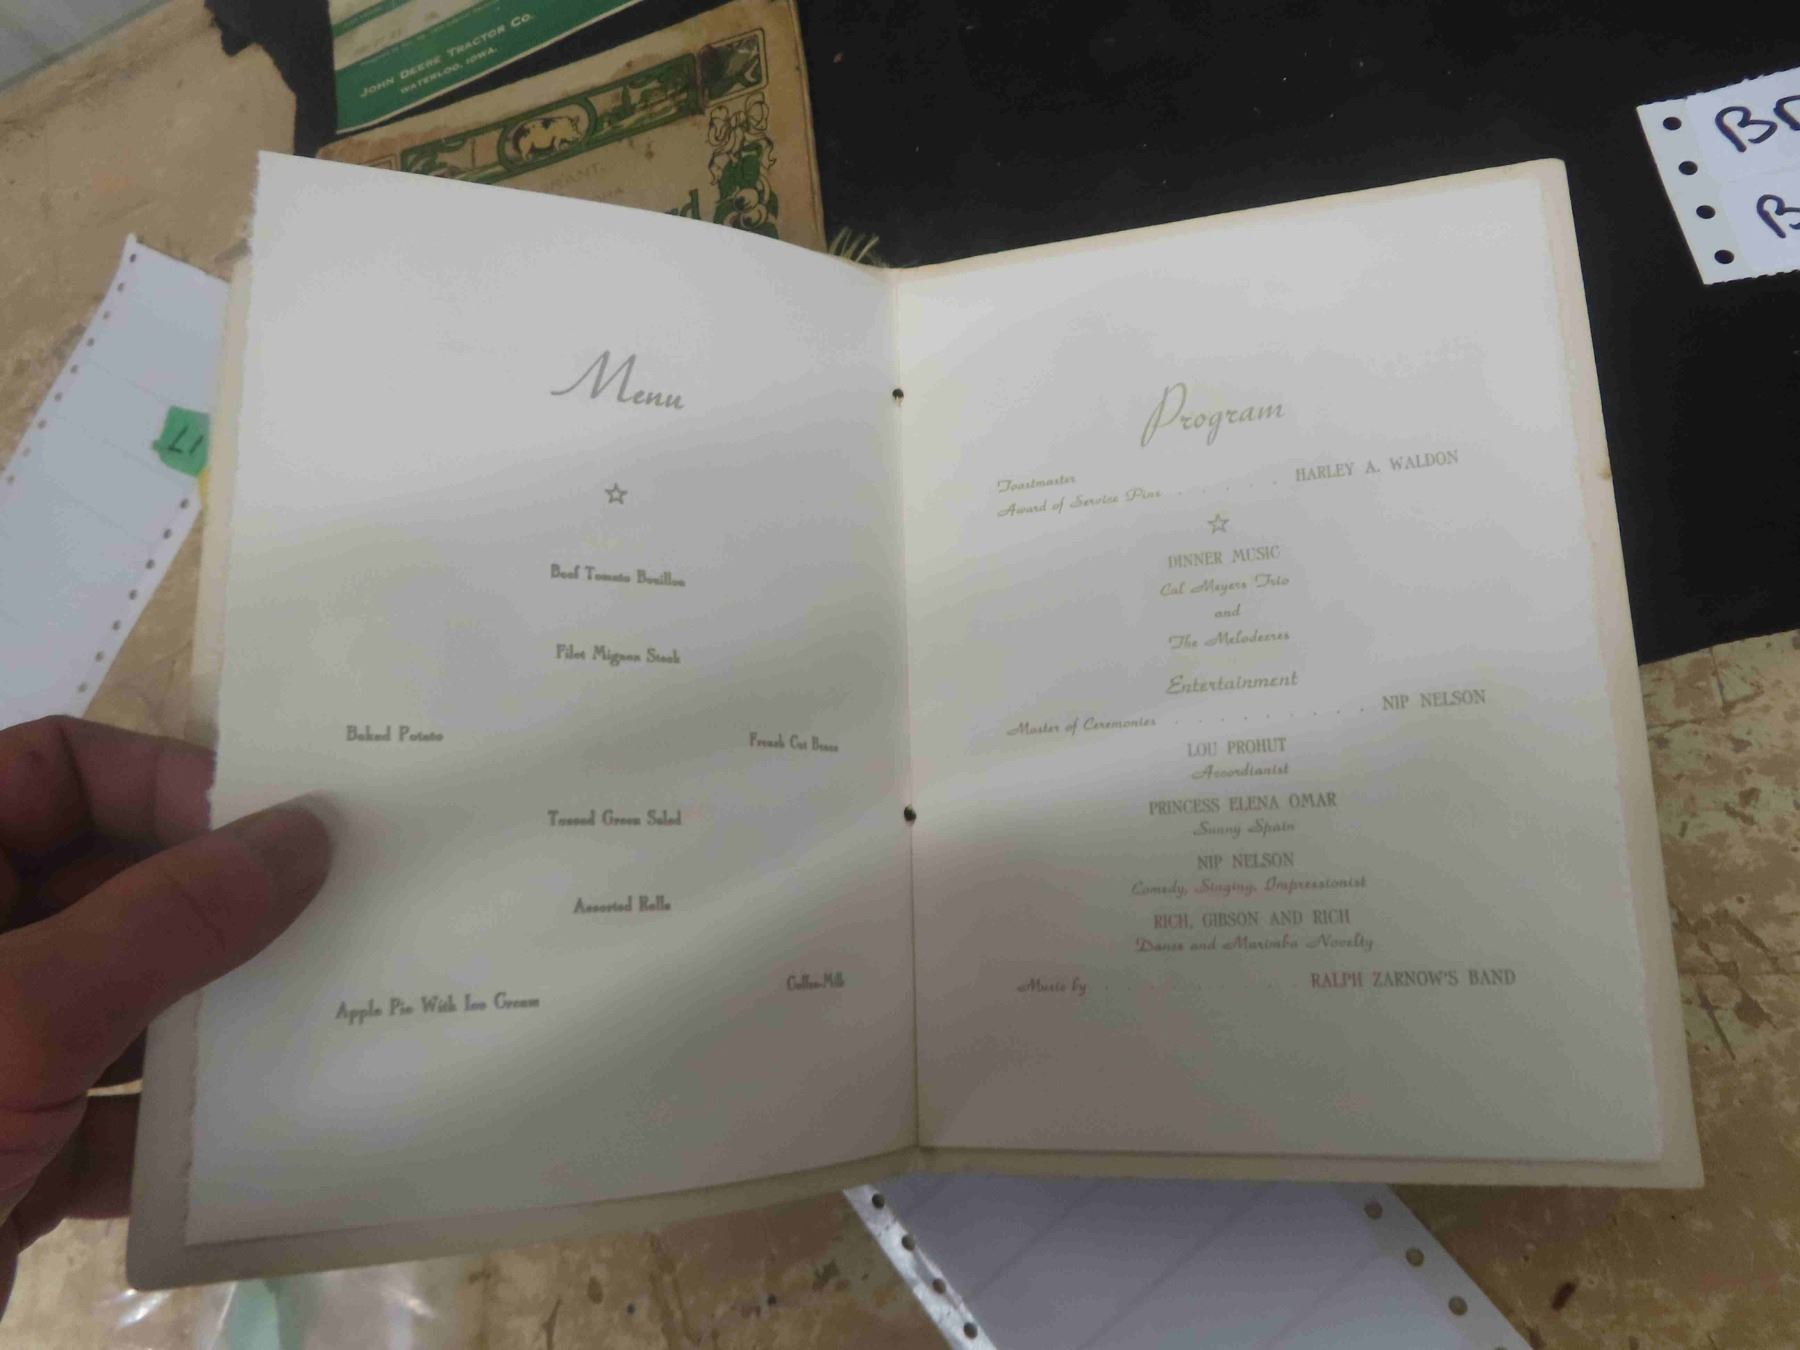 JOHN DEERE TRACTOR CO.
WATERLOO, IOWA.
Menu
Beef Tomato Bouillon
Filet Mignon Steak
Baked Potato
French Cut Beans
Tossed Green Salad
Assorted Rolls
Apple Pie With Ice Cream
Coffee-Milk
Program
Toastmaster
Award of Service Pins . . . . . . HARLEY A. WALDON
DINNER MUSIC
Cal Meyers Trio
and
The Melodeeres
Entertainment
Master of Ceremonies . . . . . . . . . NIP NELSON
LOU PROHUT
Accordianist
PRINCESS ELENA OMAR
Sunny Spain
NIP NELSON
Comedy, Singing, Impressionist
RICH, GIBSON AND RICH
Dance and Marimba Novelty
Music by . . . . . . . . . RALPH ZARNOW'S BAND
L1